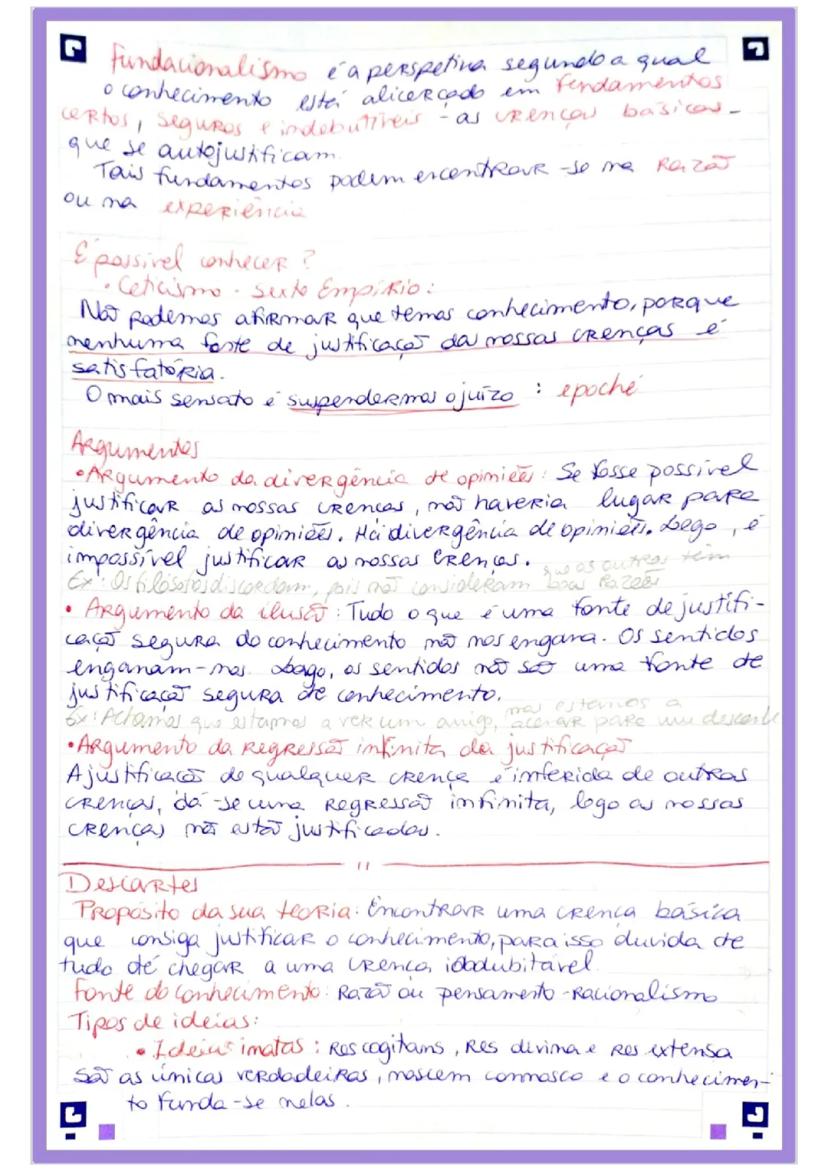 Fundacionalismo é a perspetiva segundo a qual
o conhecimento está alicerçado em fundamentos
certos, seguros e indubitáveis - as crenças básicas -
que se autojustificam.
Tais fundamentos podem encontrar-se na Razão
ou na experiência
É possível conhecer?
• Ceticismo - sexto Empírio:
Não podemos afirmar que temos conhecimento, porque
nenhuma fonte de justificação da nossas crenças é
satisfatória.
O mais sensato é suspendermos o juízo : epoché
Argumentos
• Argumento da divergência de opiniões: Se fosse possível
justificar as nossas crenças, não haveria lugar para
divergência de opiniões. Há divergência de opiniões. Logo, é
impossível justificar as nossas crenças.
Ex: Os filósofos discordam, pois não consideram que as outras têm boas razões
• Argumento da ilusão: Tudo o que é uma fonte de justifi-
cação segura do conhecimento não nos engana. Os sentidos
enganam-nos. Logo, os sentidos não são uma fonte de
justificação segura de conhecimento.
Ex: Achamos que estamos a ver um amigo, mas estamos a acenar para um desconh
• Argumento da regressão infinita da justificação
A justificação de qualquer crença é inferida de outras
crenças, dá-se uma regressão infinita, logo as nossas
crenças não estão justificadas.
Descartes
Propósito da sua teoria: Encontrar uma crença básica
que consiga justificar o conhecimento, para isso duvida de
tudo até chegar a uma crença idodubitável.
Fonte do conhecimento: Razão ou pensamento - Racionalismo
Tipos de ideias:
• Ideias inatas: Res cogitans, Res divina e Res extensa
São as únicas verdadeiras, nascem connosco e o conhecimen-
to funda-se nelas.